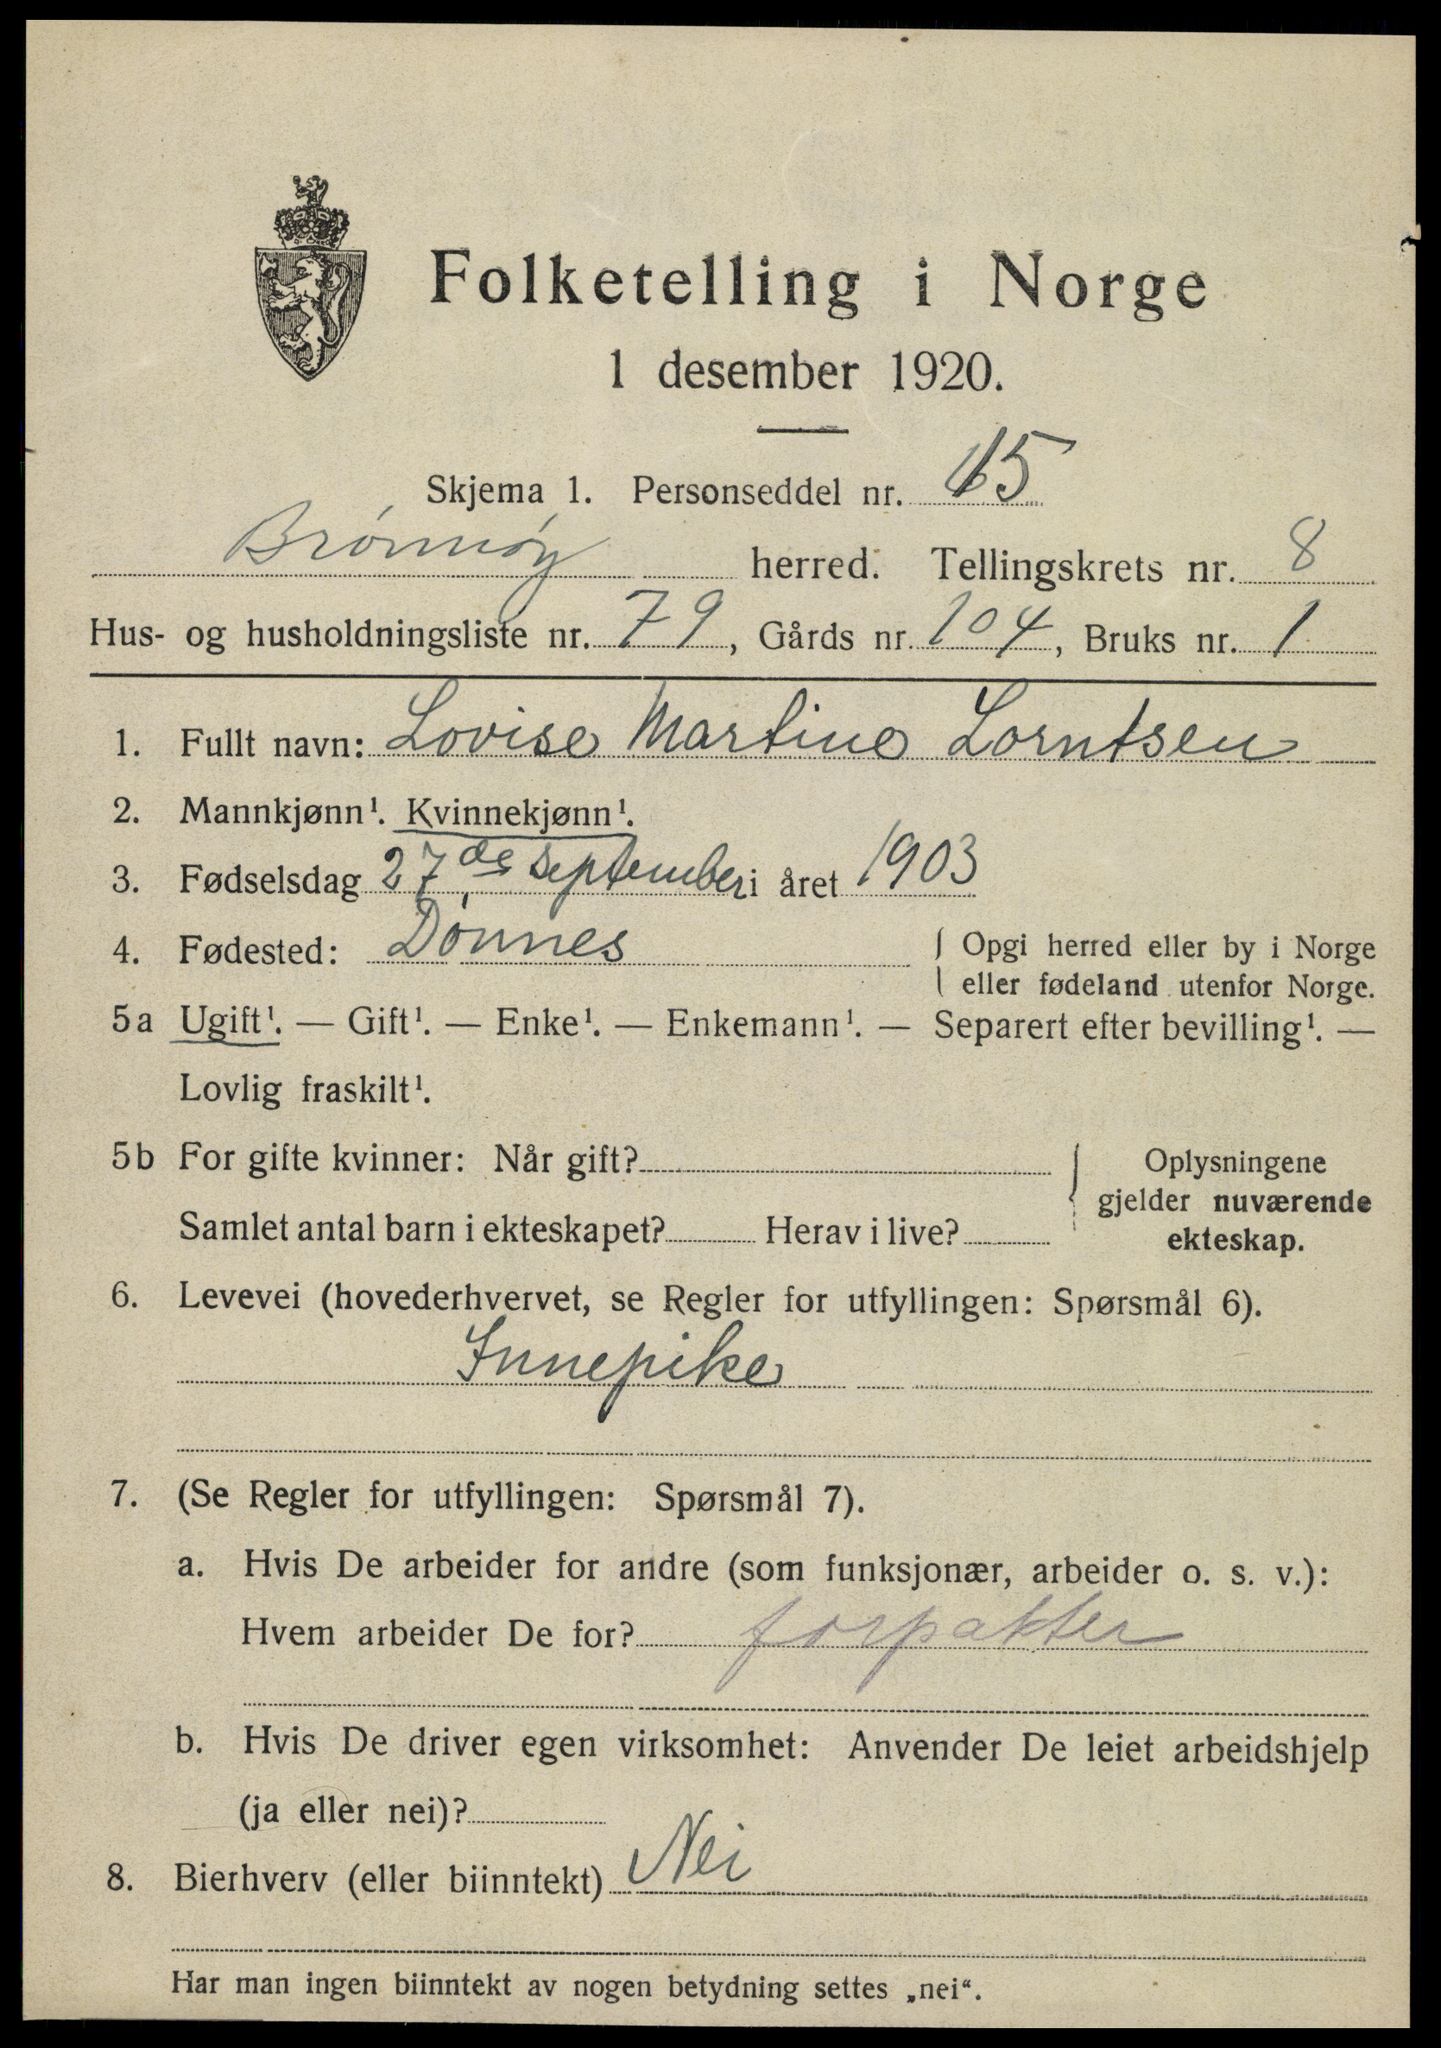 Folketelling i Norge
1 desember 1920.
Skjema 1. Personseddel nr. 5
Brønnøy herred. Tellingskrets nr. 8
Hus- og husholdningsliste nr. 79, Gårds nr. 104, Bruks nr. 1
1. Fullt navn: Lovise Martine Lorntsen
2. Mannkjønn¹. Kvinnekjønn¹.
3. Fødselsdag 27de september i året 1903
4. Fødested: Dønnes { Opgi herred eller by i Norge
eller fødeland utenfor Norge.
5a Ugift¹. — Gift¹. — Enke¹. — Enkemann¹. — Separert efter bevilling¹. —
Lovlig fraskilt¹.
5b For gifte kvinner: Når gift? { Oplysningene
gjelder nuværende
Samlet antal barn i ekteskapet? Herav i live?
ekteskap.
6. Levevei (hovederhvervet, se Regler for utfyllingen: Spørsmål 6).
Innepike
7. (Se Regler for utfyllingen: Spørsmål 7).
a. Hvis De arbeider for andre (som funksjonær, arbeider o. s. v.):
Hvem arbeider De for? forpakter
b. Hvis De driver egen virksomhet: Anvender De leiet arbeidshjelp
(ja eller nei)?
8. Bierhverv (eller biinntekt) Nei
Har man ingen biinntekt av nogen betydning settes „nei“.